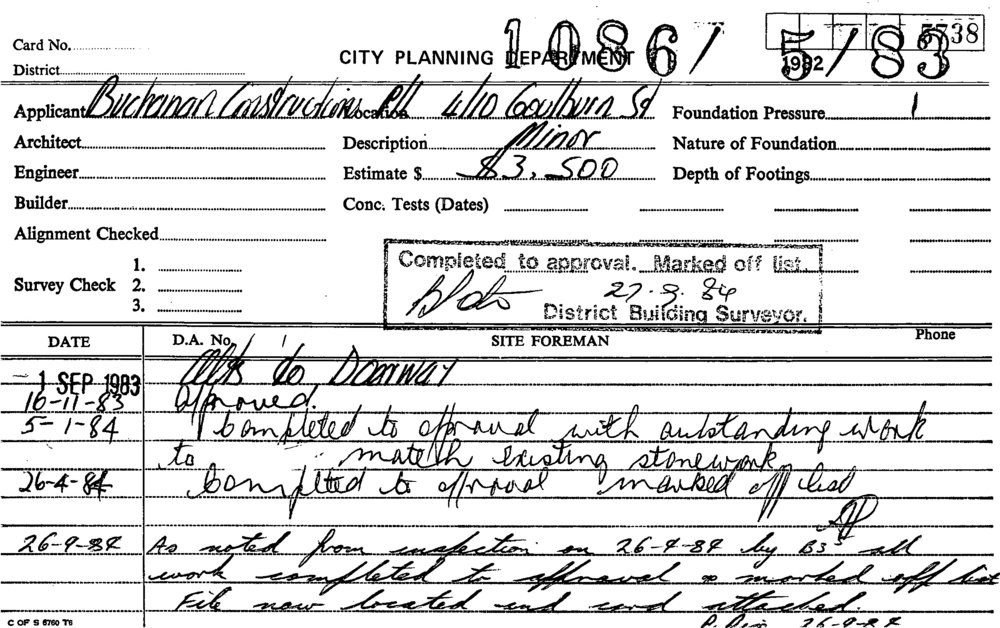 5738
1086/5/83
1982
Card No.
CITY PLANNING DEPARTMENT
District
Applicant Buchanan Constructions P/L Location 4/10 Goulburn St Foundation Pressure
Architect Description Minor Nature of Foundation
Engineer Estimate $ $3,500 Depth of Footings
Builder Conc. Tests (Dates)
Alignment Checked
Completed to approval. Marked off list.
Survey Check 1.
2.
3.
27.9.84
District Building Surveyor.
DATE D.A. No. SITE FOREMAN Phone
1 SEP 1983 Alts to Doorway
16-11-83 Approved.
5-1-84 Completed to approval with outstanding work
to match existing stonework
26-4-84 Completed to approval marked off list
26-9-84 As noted from inspection on 26-4-84 by B35 all
work completed to approval & marked off list
File now located and card attached.
26-9-84
C OF S 6760 T6